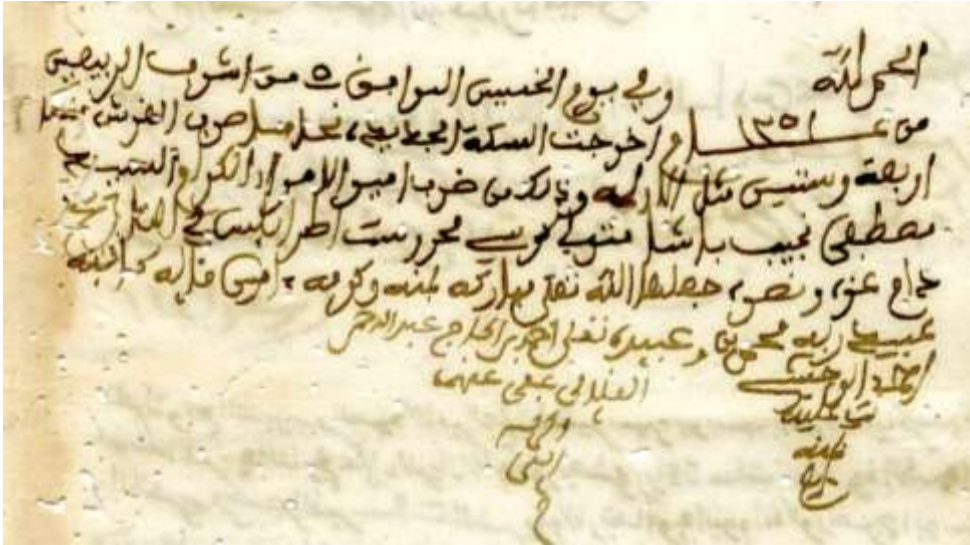 الحمد لله وفي يوم الخميس الموافق ٥ من اشرف الربيعين
من عام ١٢٥١ اخرجت السكة نحاسا صرف الغرش منها
اربعة وستين مثل وذلك من ضرب امير الامراء الكرام السيد
مصطفى نجيب باشا متولي كرسي محروست اطرابلس في التاريخ
دام عزه ونصره جعلها الله تعلى مباركه بمنه وكرمه امين قاله كاتبه
عبيد ربه محمد بن وعبيده تعلى احمد بن الحاج عبد الرحمن
عفى عنهما